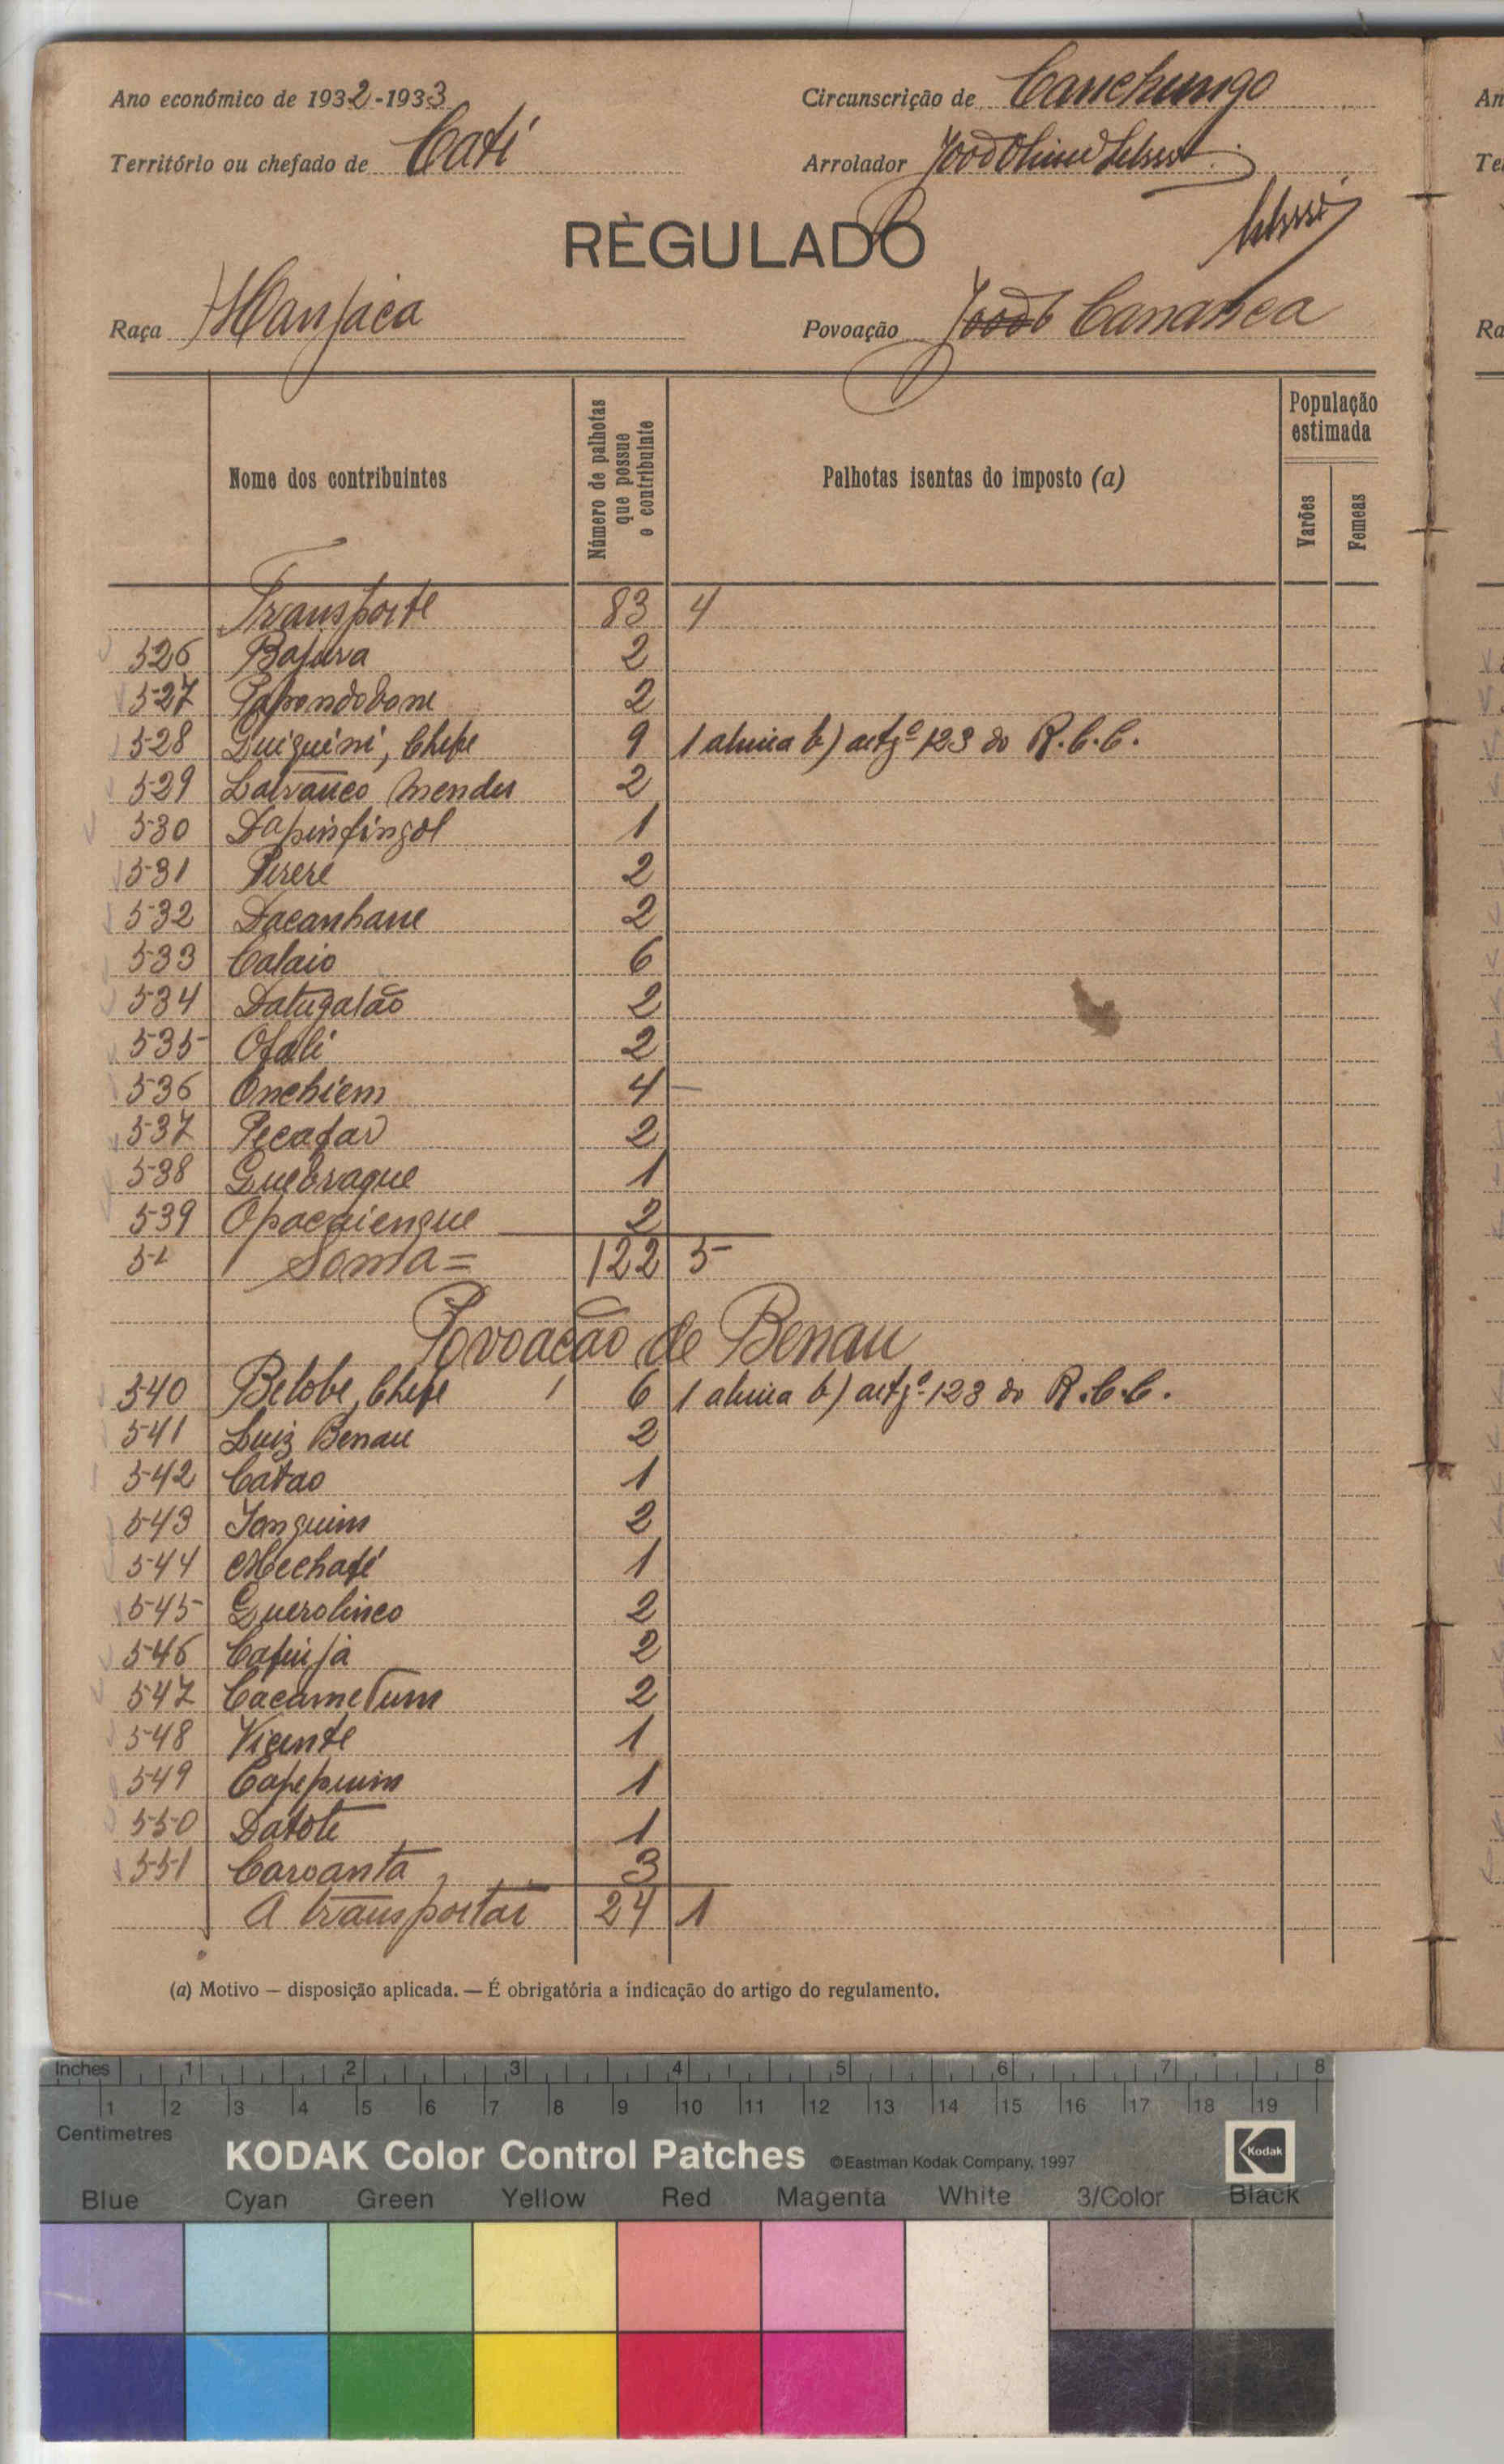 Ano económico de 1932-1933
Circunscrição de Canchungo
Território ou chefado de Cati
Arrolador João
REGULADO
Raça Manjaca
Povoação Cananca
Nome dos contribuintes
Número de palhotas que possue o contribuinte
Palhotas isentas do imposto (a)
População estimada
Varões
Femeas
Transporte 83 4
526 Bajuva 2
527 Paprondobone 2
528 Quiquini, Chefe 9 1 alinea b) artgº 123 do R.C.C.
529 Lavranco Mendes 2
530 Dapinfingol 1
531 Pireré 2
532 Dacanhane 2
533 Calaio 6
534 Datugalão 2
535 Ofali 2
536 Onchiem 4
537 Pecafar 2
538 Quebraque 1
539 Opacaiengue 2
Soma = 122 5
Povoação de Benau
540 Belobe, Chefe 6 1 alinea b) artgº 123 do R.C.C.
541 Luiz Benau 2
542 Catao 1
543 Janguim 2
544 Mechafé 1
545 Querolinco 2
546 Cafinjá 2
547 Cacametum 2
548 Vicente 1
549 Capepuim 1
550 Datote 1
551 Caroanta 3
A transportar 24 1
(a) Motivo — disposição aplicada. — É obrigatória a indicação do artigo do regulamento.
Inches 1 2 3 4 5 6 7 8
1 2 3 4 5 6 7 8 9 10 11 12 13 14 15 16 17 18 19
Centimetres
KODAK Color Control Patches ©Eastman Kodak Company, 1997 Kodak
Blue Cyan Green Yellow Red Magenta White 3/Color Black